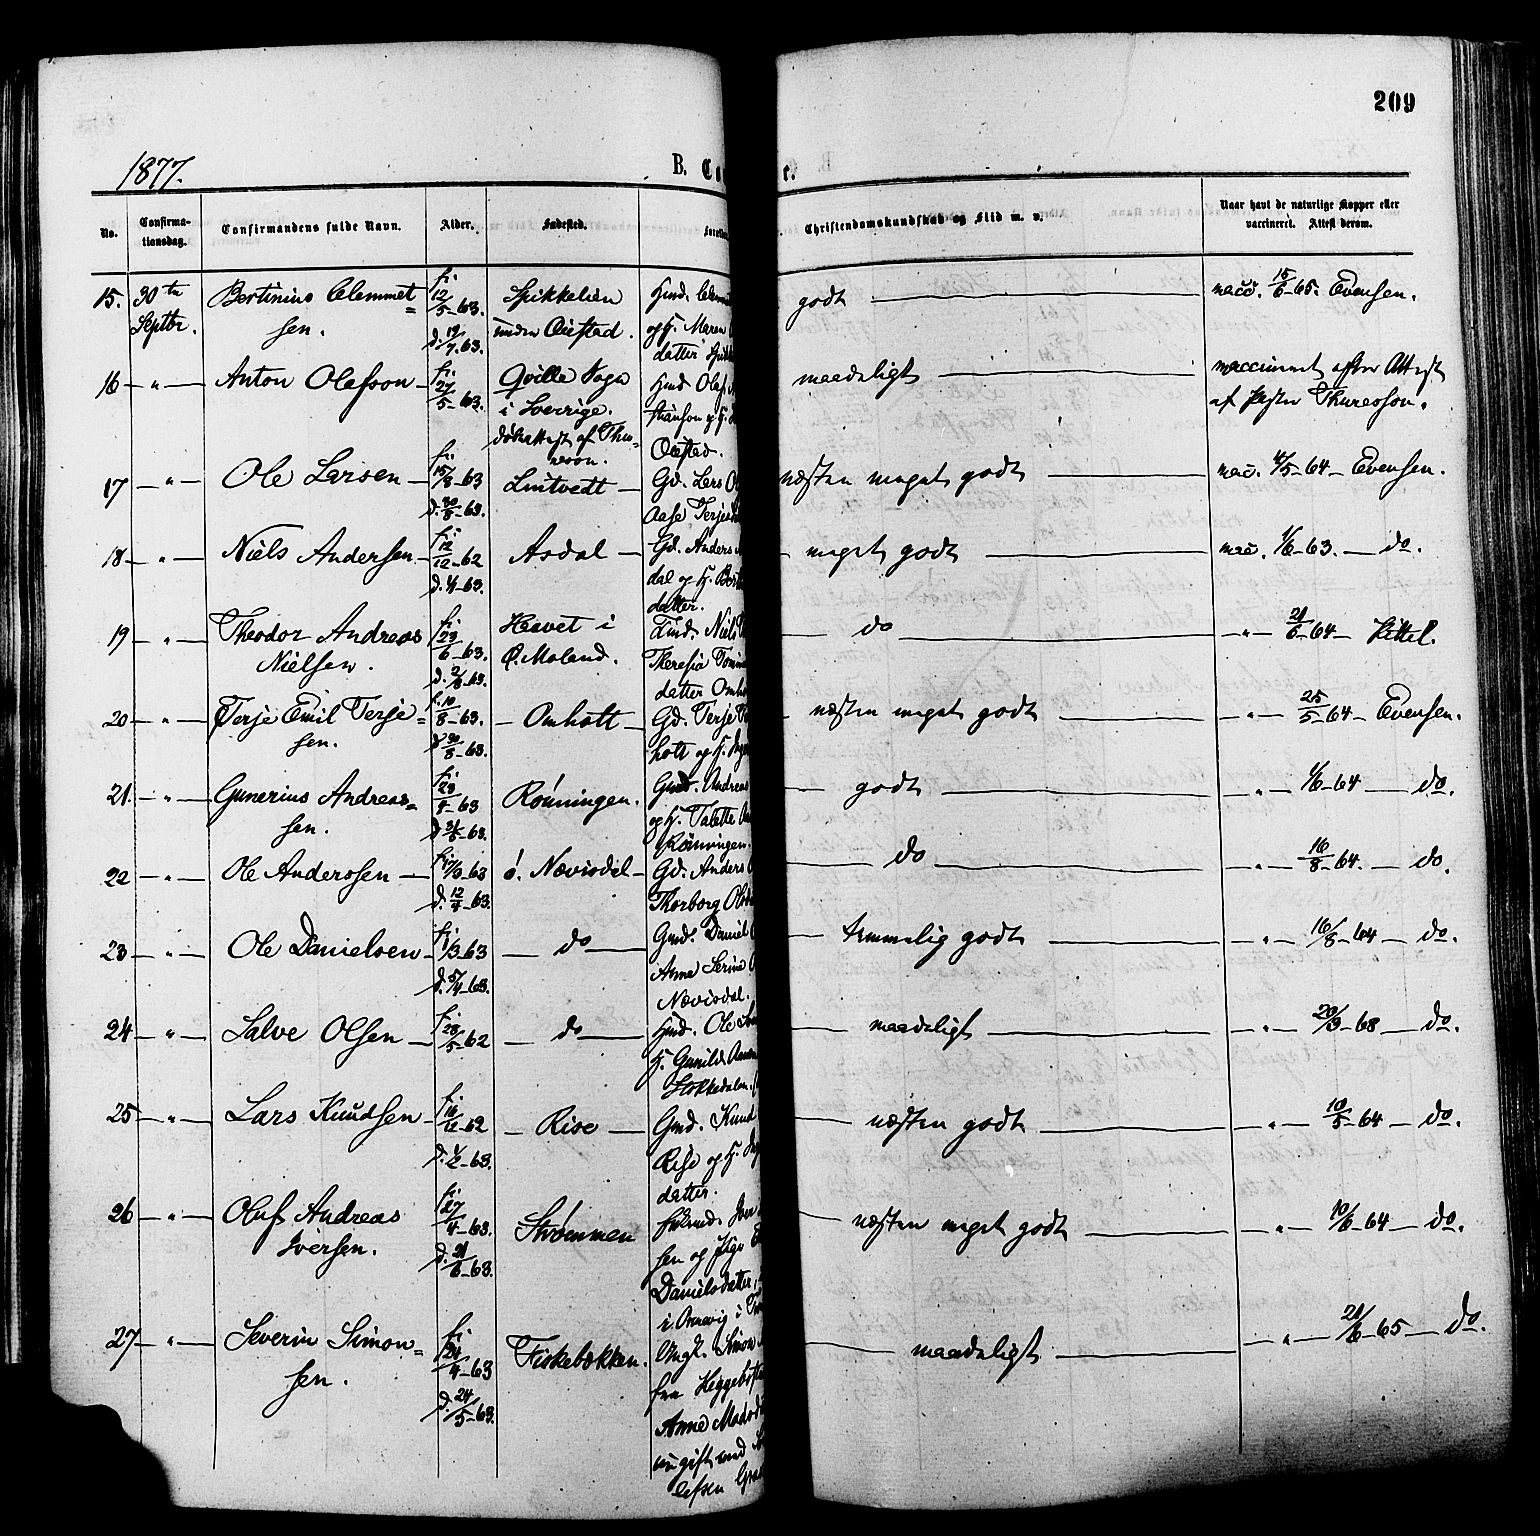 209
1877.
B. Co
r.
No.
Confirma-
tionsdag.
Confirmandens fulde Navn.
Alder.
Fødested.
Forældre
Christendomskundskab og Flid m. v.
Naar havt de naturlige Kopper eller
vaccineret. Attest derom.
15. 30te Septbr. Bertinius Clemmet=
sen.
f. 12/5-63.
d. 19/7.63.
Spikkelien
under Øiestad.
Hmd. Clemm
og H. Maren
datter Spik
godt
vacc. 15/6-65. Evensen.
16 " Anton Olafson
f. 27/5-63.
Qville Sogn
i Sverrige.
Døbeattest af Thu=
resson.
Hmd Olaf
stianson og H.
Øiestad.
maadeligt
vaccineret efter Attest
af Pastor Thuresson.
17 " Ole Larsen
f. 15/3-63
d. 30/8-63.
Lintvedt
Gd. Lars O
Aase Terje
næsten meget godt
vacc. 4/5-64 Evensen.
18 " Niels Andersen
f. 12/12-62
d. 4/1-63.
Asdal
Gd. Anders
dal og H. Ber
datter.
meget godt
vacc. 1/6-63. do.
19 " Theodor Andreas
Nielsen.
f. 23/6-63.
d. 2/8-63.
Hævet i
Ø. Moland.
Niels
Theresia
datter Omh
do
" 21/6-64 Kittel.
20 " Terje Emil Terje=
sen.
f. 10/8-63.
d. 30/8-63.
Omholt
Gd. Terje
holt og H.
næsten meget godt
" 25/5-64 Evensen.
21. " Gunerius Andreas=
sen.
d. 31/5-63.
Rønningen.
Gmd. Andreas
og H. Talette
Rønningen.
godt
" 1/6-64 do.
22 " Ole Anderssen
d. 12/4-63.
ø. Nævisdal
Gd. Anders
Thorborg Ols
do
" 16/8-64. do.
23 " Ole Danielsen
f. 1/3-63
d. 5/4-63.
do
Gmd. Daniel
Anne Serine
Nævisdal.
temmelig godt
" 16/8-64 do.
24 " Salve Olsen
f. 28/5-62
do
Hmd. Ole
H. Gunild
Stokkedalen.
maadeligt
" 20/9-68 do.
25 " Lars Knudsen
Rise
Gmd. Knud
Rise og H.
datter.
næsten godt
" 10/5-64 do.
26 " Oluf Andreas
Iversen.
f. 27/4-63.
d. 21/6-63.
Strømmen
sen og Pige
Danielsdatter,
næsten meget godt
" 10/6-64 do.
27 " Severin Simon=
sen.
f. 24/4-63
d. 24/5-63.
Fiskebækken.
Ungk. Simon
fra Heggebø
Anne Mads
nu gift med
lefsen
maadeligt
" 21/6-65 do.